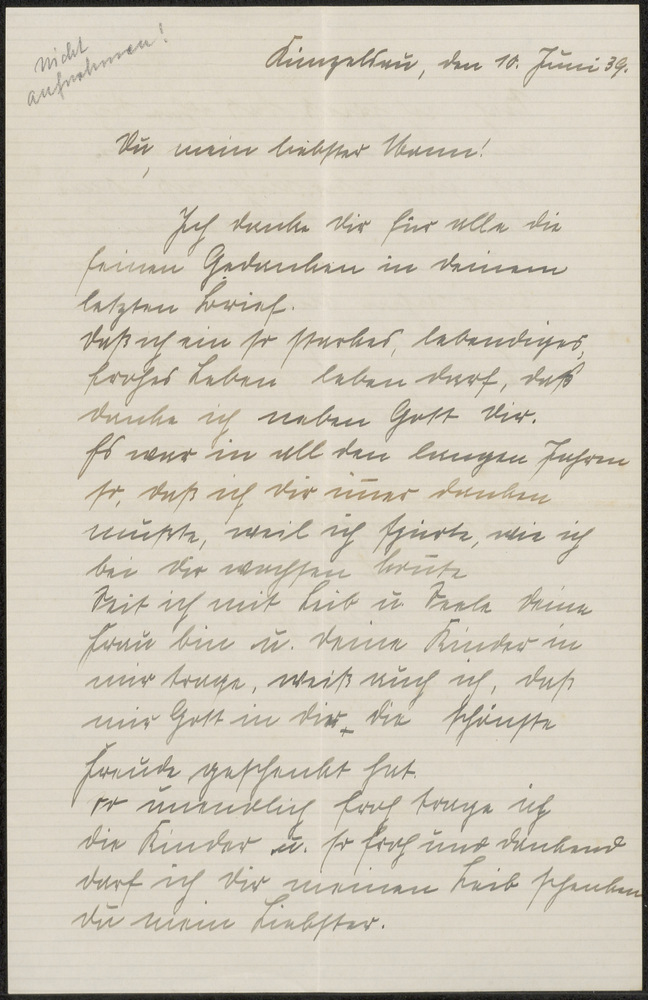 nicht
aufnehmen!
Künzelsau, den 10. Juni 39.
Du, mein liebster Mann!
Ich danke Dir für alle die
feinen Gedanken in deinem
letzten Brief.
Daß ich ein so starkes, lebendiges,
frohes Leben leben darf, daß
danke ich neben Gott Dir.
Es war in all den langen Jahren
so, daß ich Dir im̄er danken
mußte, weil ich spürte, wie ich
bei Dir wachsen
Seit ich mit Leib u. Seele Deine
Frau bin u. Deine Kinder in
mir trage, weiß auch ich, daß
mir Gott in Dir die schönste
Freude geschenkt hat.
So unendlich froh trage ich
die Kinder u. so froh und dankend
darf ich Dir meinen Leib schenken
Du mein Liebster.